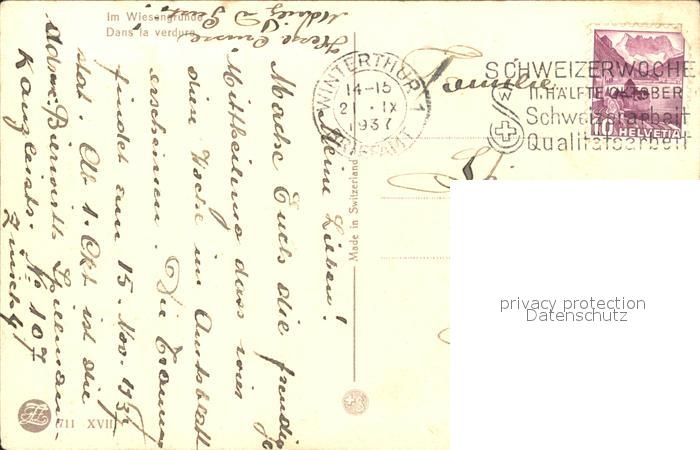 Im Wiesengrunde
Dans la verdure
WINTERTHUR 1
14-15
21. IX
1937
SCHWEIZERWOCHE
1. HÄLFTE OKTOBER
Schweizerarbeit
Qualitätsarbeit
10 HELVETIA
Familie
Made in Switzerland
Meine Lieben!
Mache Euch die freudige
Mittheilung dass wir
diese Woche im Amtsblatt
erscheinen. Die Trauung
findet am 15. Nov. 1937
statt. Ab 1. Okt ist die
Kanzleistr. No 107
Zürich 4
1711 XVII
privacy protection
Datenschutz